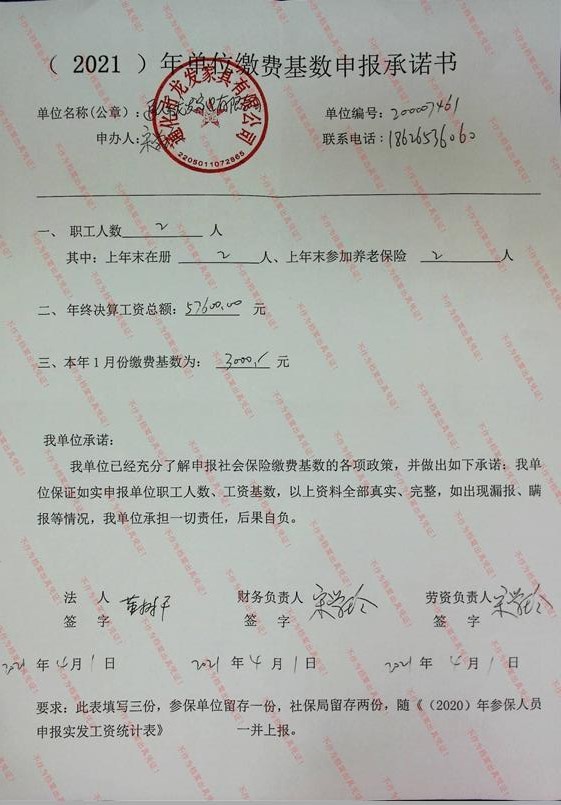 （ 2021 ）年单位缴费基数申报承诺书
单位名称(公章)：
单位编号：200007461
申办人：
联系电话：18626536060
通化市龙发家具有限公司
2205011072865
一、 职工人数 2 人
其中：上年末在册 2 人、上年末参加养老保险 2 人
二、 年终决算工资总额：57600.00 元
三、本年1月份缴费基数为： 3000.- 元
我单位承诺：
我单位已经充分了解申报社会保险缴费基数的各项政策，并做出如下承诺：我单
位保证如实申报单位职工人数、工资基数，以上资料全部真实、完整，如出现漏报、瞒
报等情况，我单位承担一切责任，后果自负。
法 人 财务负责人 劳资负责人
签 字 签 字 签 字
2021 年 4 月 1 日 2021 年 4 月 1 日 2021 年 4 月 1 日
要求：此表填写三份，参保单位留存一份，社保局留存两份，随《（2020）年参保人员
申报实发工资统计表》 一并上报。